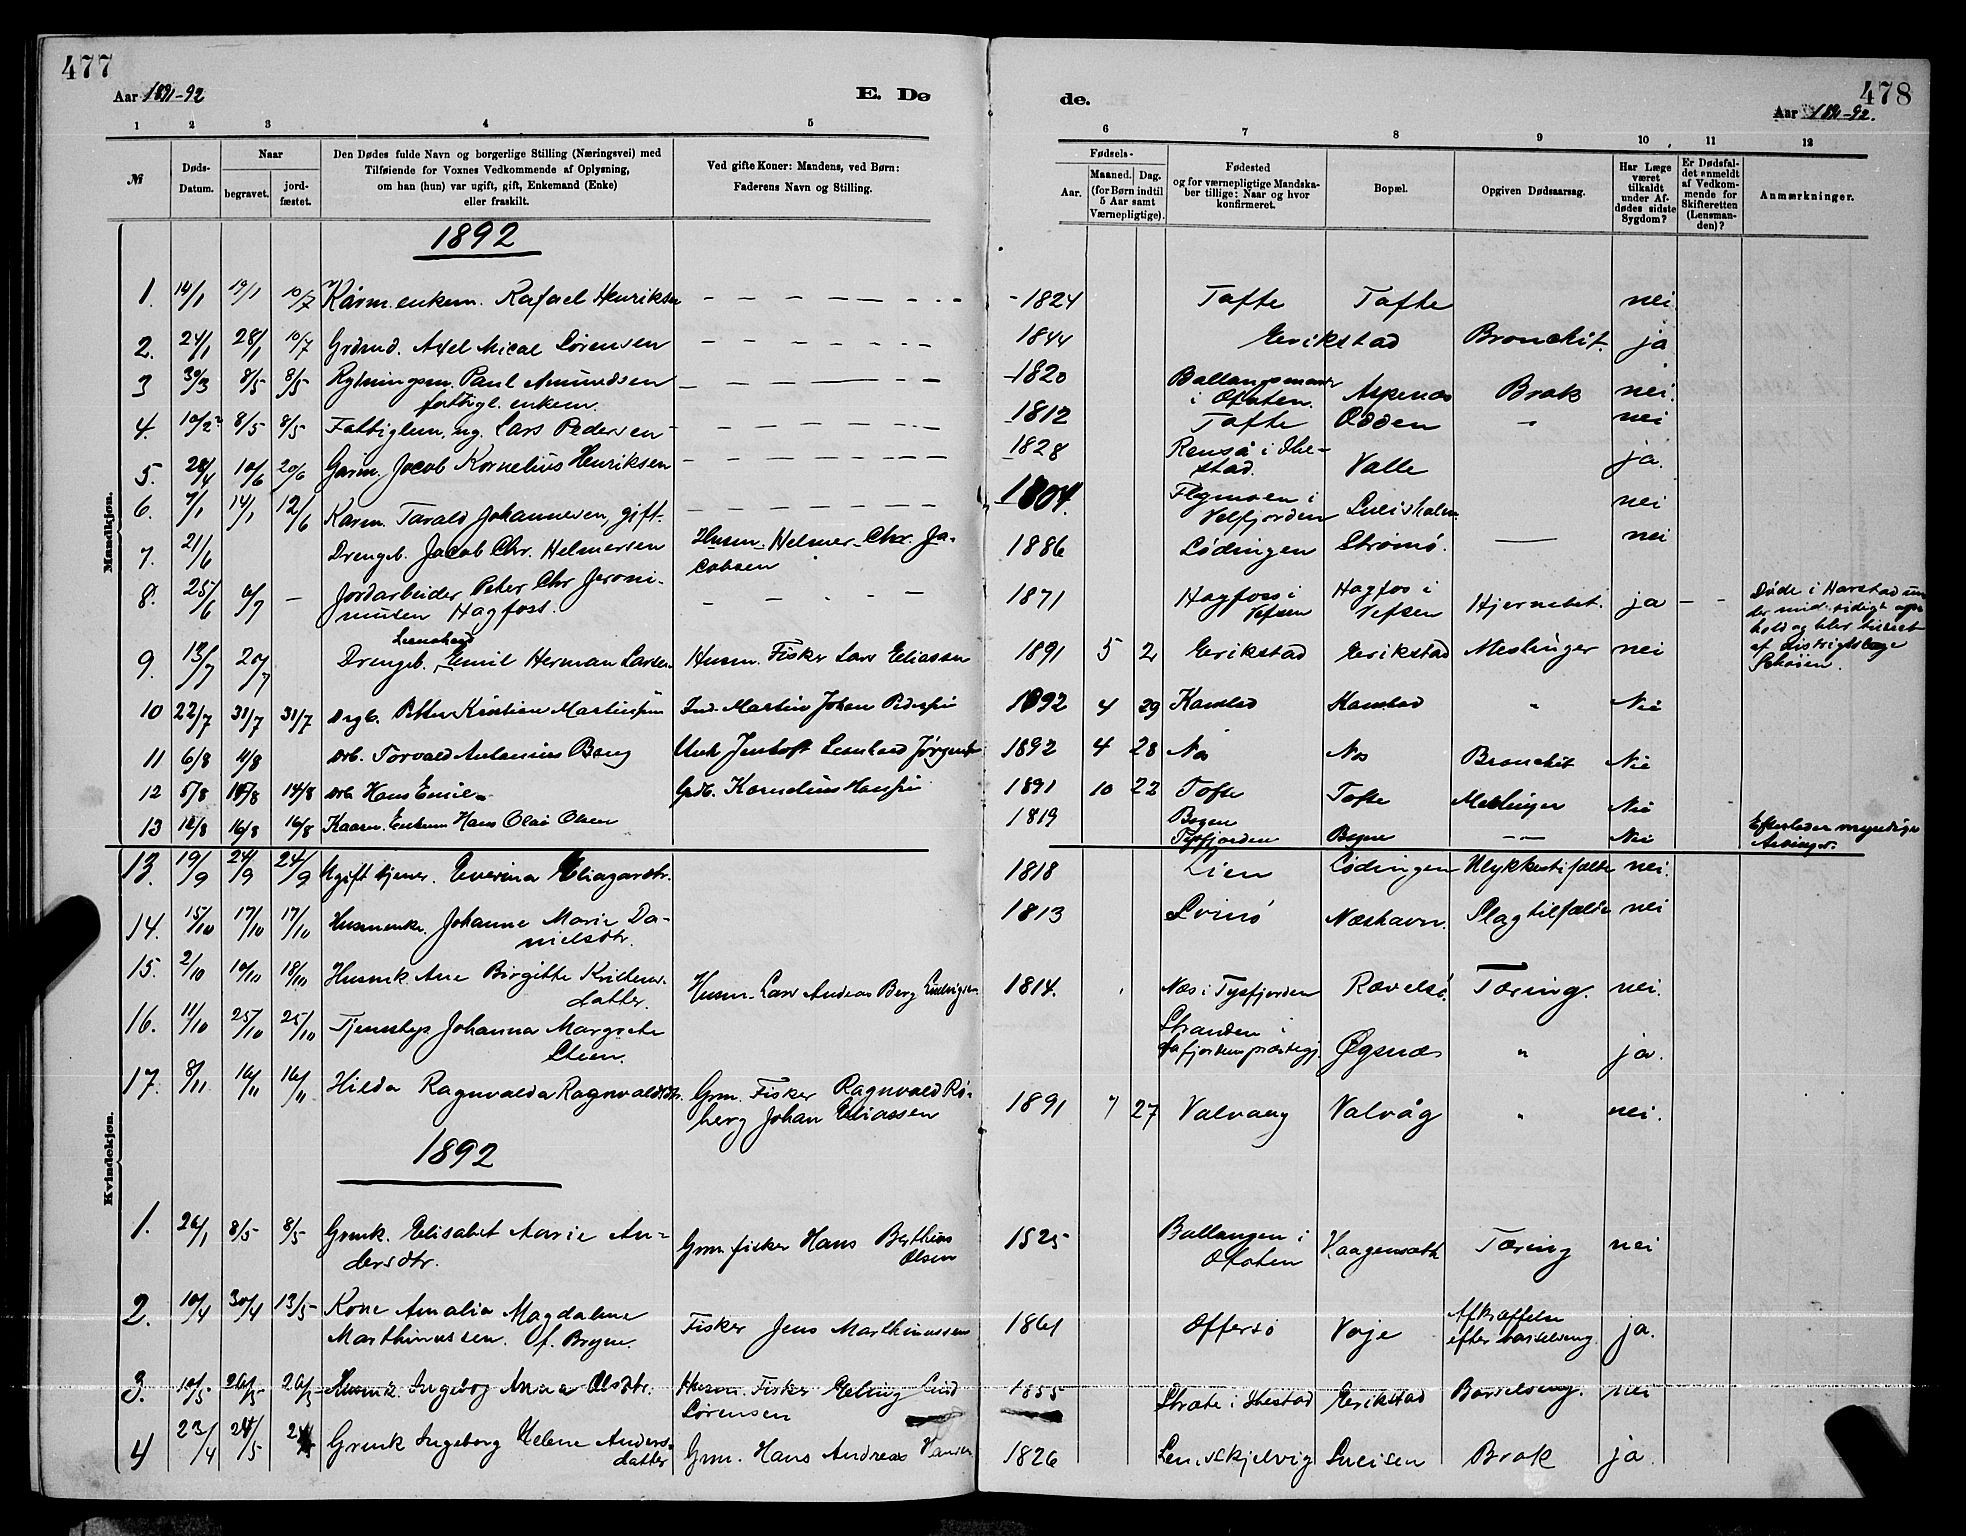 477
Aar 1891-92
E. Dø
de.
478
Aar 1891-92.
1 2 3 4 5 6 7 8 9 10 11 12
№
Døds-
Datum.
Naar
begravet.
jord-
fæstet.
Den Dødes fulde Navn og borgerlige Stilling (Næringsvei) med
Tilføiende for Voxnes Vedkommende af Oplysning,
om han (hun) var ugift, gift, Enkemand (Enke)
eller fraskilt.
Ved gifte Koner: Mandens, ved Børn:
Faderens Navn og Stilling.
Fødsels-
Aar.
Maaned. Dag.
(for Børn indtil
5 Aar samt
Værnepligtige).
Fødested
og for værnepligtige Mandska-
ber tillige: Naar og hvor
konfirmeret.
Bopæl.
Opgiven Dødsaarsag.
Har Læge
været
tilkaldt
under Af-
dødes sidste
Sygdom?
Er Dødsfal-
det anmeldt
af Vedkom-
mende for
Skifteretten
(Lensman-
den)?
Anmærkninger.
Mandkjøn.
1892
1. 14/1 19/1 10/7 Kårm. enkem. Rafael Henriksen - 1824 Tofte Tofte nei
2. 24/1 28/1 10/7 Grdmd. Axel Mical Sørensen - 1844 Erikstad Bronchit. ja
3 30/3 8/5 8/5 Rydningsm. Paul Amundsen - 1820 Ballangsmarn Aspenæs Brok nei.
fattigl. enkem. i Ofoten.
4. 8/5 8/5 Fattiglem, ug. Lars Pedersen - 1812 Tofte Odden " nei
5. 28/4 10/6 20/6 Gårm. Jacob Kornelius Henriksen - 1828 Renså i Ibe- Valle ja.
stad.
6. 7/1 14/1 12/6 Kårm. Tarald Johannesen, gift. - 1804. i nei
Velfjorden
7. 21/6 Drengeb. Jacob Chr. Helmersen Husm. Helmer Chr. Ja- 1886 Lødingen Strømø. — nei
cobsen
8. 25/6 6/7 - Jordarbeider Peter Chr Jeroni- 1871 Hagfoss i Hagfos i Hjernebet. ja - - Døde i Harstad un-
musen Hagfoss. Vefsen Vefsen der midlertidigt op-
hold og blev tilseet
af distriktslæge
Schøien.
9. 13/7 20/7 Drengeb. Leonhard Emil Herman Larsen Husm. Fisker Lars Eliassen 1891 5 2 Erikstad Erikstad Meslinger nei
10 22/7 31/7 31/7 Drgb. Petter Kristian Martinsen Ind. Martin Johan Pedersen 1892 4 29 Kanstad Kanstad " Nei
11 6/8 11/8 Drb. Torvald Antonius Bang Jentoft Leonhard Jørgensen 1892 4 28 Næs Næs Bronchit Nei
12 5/8 14/8 Drb Hans Emil Grdb. Kornelius Hansen 1891 10 22 Tofte Tofte Meslinger Nei
13 16/8 16/8 Kaarm. Enkem Hans Olai Olsen 1819 Bogen Bogen — Nei Efterlader myndige
Tysfjorden Arvinger.
Kvindekjøn.
13. 19/9 24/9 24/9 Ugift tjener. Everina Eliasardtr. 1818 Lien Lødingen Ulykkestifælde nei.
14. 15/10 17/10 17/10 Husmenke. Johanne Marie Da- 1813 Svinø Næshavn. Slagtilfælde nei
nielsdtr.
15. 2/10 10/10 18/10 Husmk. Ane Birgitte Kristens- Husm. Lars Andreas Berg Ludvigsen 1814. Næs i Tysfjorden Rævelsø. Tæring. nei.
datter.
16. 11/10 25/10 25/10 Tjenestep. Johanna Margrete Stranden i Øgsnæs " ja.
Steen.
17. 8/11 16/11 16/11 Hilda Ragnvalda Ragnvaldsdtr. Grm. Fisker Ragnvald Rø- 1891 7 27 Valvaag Valvåg " nei.
berg Johan Eliassen
1892
1. 26/1 8/5 8/5 Grmk. Elisabet Marie An- Grm. fisker Hans Berthius 1825 Ballangen i Kaagensæth Tæring nei
dersdtr. Olsen Ofoten
2. 10/4 30/4 13/5 Kone Amalia Magdalene Fisker Jens Marthinussen 1861 Offersø Voje Afkræftelse ja.
Marthinussen. efter barselseng.
3. 10/5 26/5 26/5 Husmk. Ingeborg Anna Olsdtr. Husm. Fisker Eling Lind 1855 i Ibestad Erikstad Barselseng. nei
Sørensen
4 23/4 Grmk Ingeborg Helene Anders- Grm. Hans Andreas Hansen 1826 Sneisen Brok ja.
datter